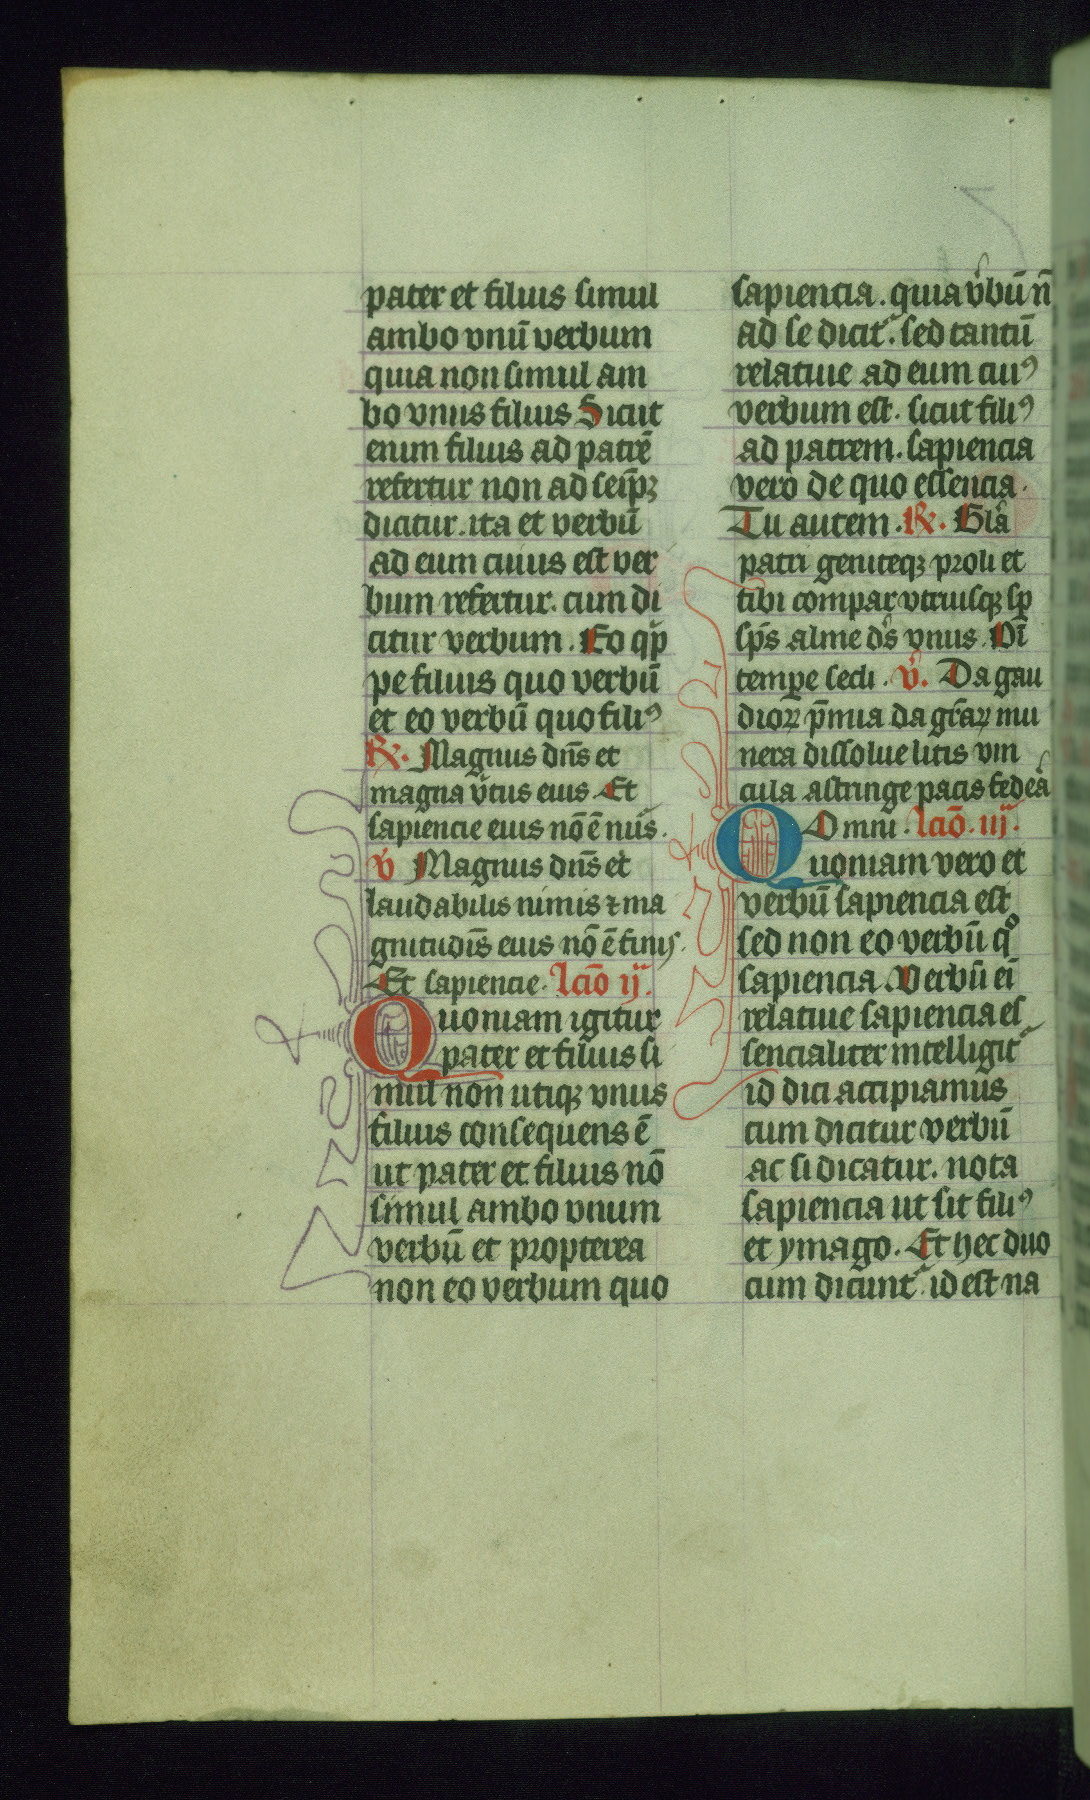 pater et filius simul
ambo vnū verbum
quia non simul am
bo vnus filius Sicut
enim filius ad patrē
refertur non ad seip̄ꝫ
dicitur. ita et verbū
ad eum cuius est ver
bum refertur. cum di
citur verbum. Eo qͥp
pe filius quo verbū
et eo verbū quo filiꝰ
℟. Magnus dn̄s et
magna v̓tus eius Et
sapiencie eius nō ē nūs.
v̓ Magnus dn̄s et
laudabilis nimis ⁊ ma
gnitudīs eius nō ē finis.
Et sapiencie. lcio̅ ij.
Quoniam igitur
pater et filius si
mul non utiqꝫ vnus
filius consequens ē
ut pater et filius nō
simul ambo vnum
verbū et propterea
non eo verbum quo
sapiencia. quia v̓bū n̄
ad se dicit᷑. sed tantū
relatiue ad eum cuiꝰ
verbum est. sicut filiꝰ
ad patrem. sapiencia
vero de quo essencia.
Tu autem. ℟. Glā
patri geniteqꝫ proli et
tibi compar vtriusqꝫ sp̄
sp̄s alme ds̄ vnus Oī
tempe secli. v̓. Da gau
dioꝝ p̄mia da gr̄aꝝ mu
nera dissolue litis vin
cula astringe pacis federa
Omni. lcio̅. iij.
Quoniam vero et
verbū sapiencia est
sed non eo verbū qͦ
sapiencia. Verbū ei̅
relatiue sapiencia es
sencialiter intelligit᷑
id dici accipiamus
cum dicitur verbū
ac si dicatur. nota
sapiencia ut sit filiꝰ
et ymago. Et hec duo
cum dicunt᷑ id est na